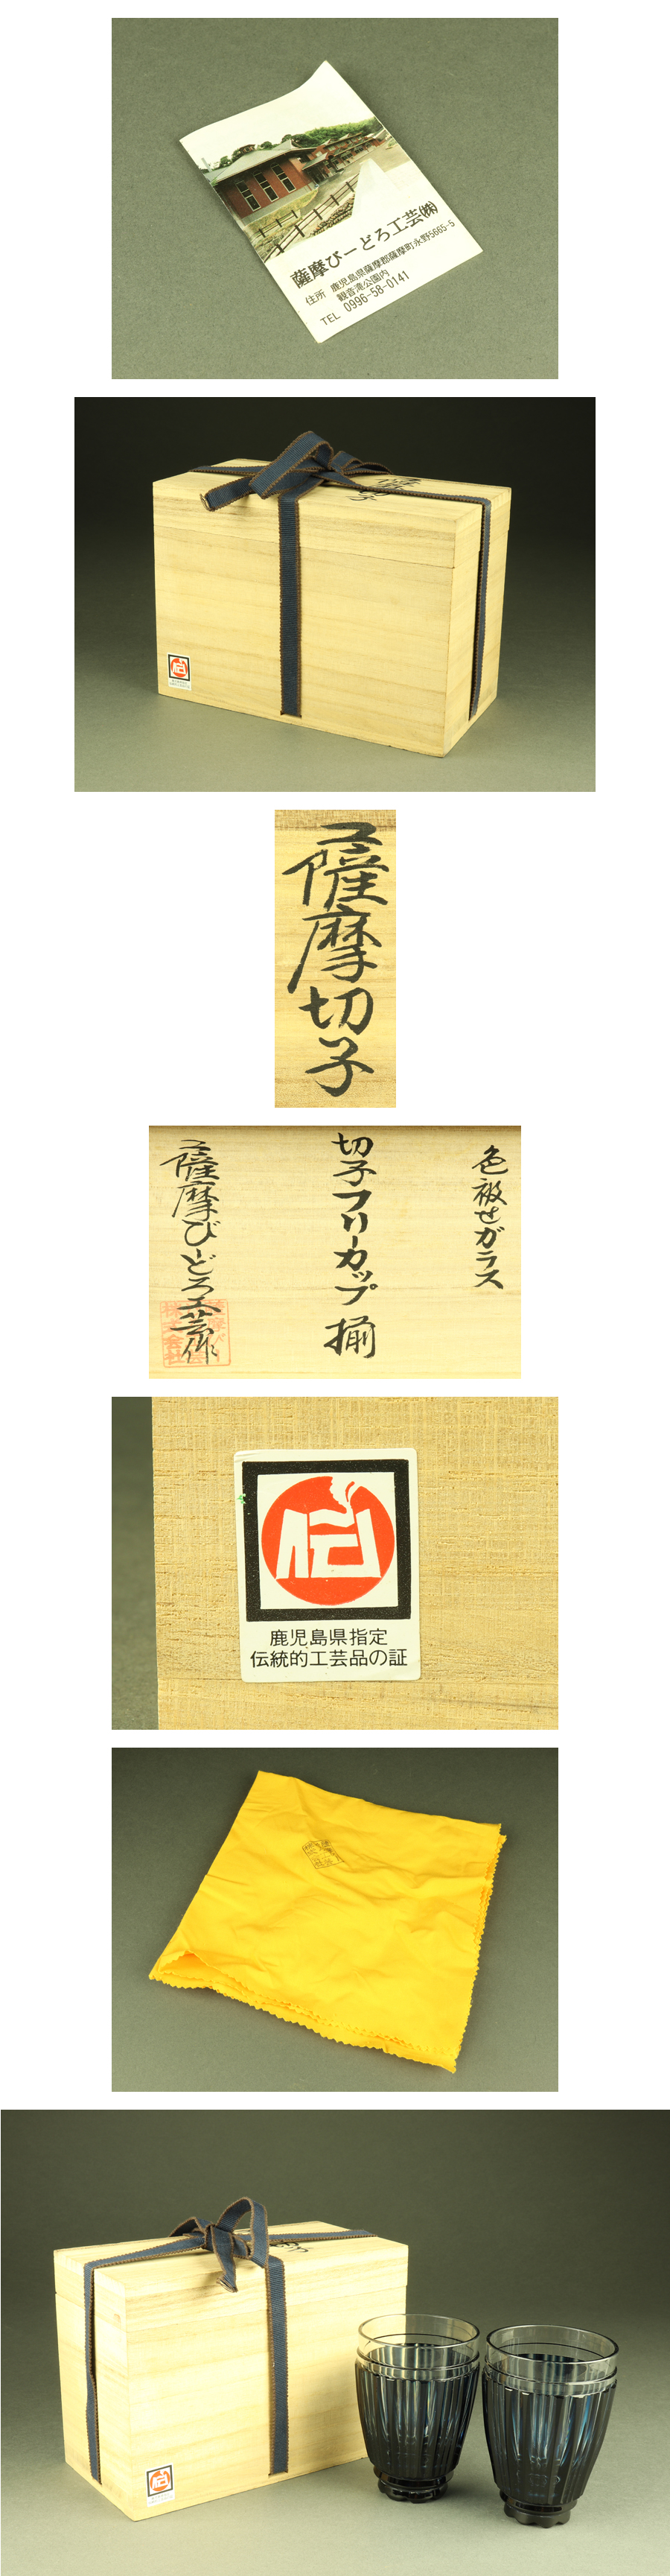 薩摩びーどろ工芸㈱
住所 鹿児島県薩摩郡薩摩町永野5665-5
観音滝公園内
TEL 0996-58-0141
薩摩切子
色被せガラス
切子フリーカップ 揃
薩摩びーどろ工芸作
伝
鹿児島県指定
伝統的工芸品の証